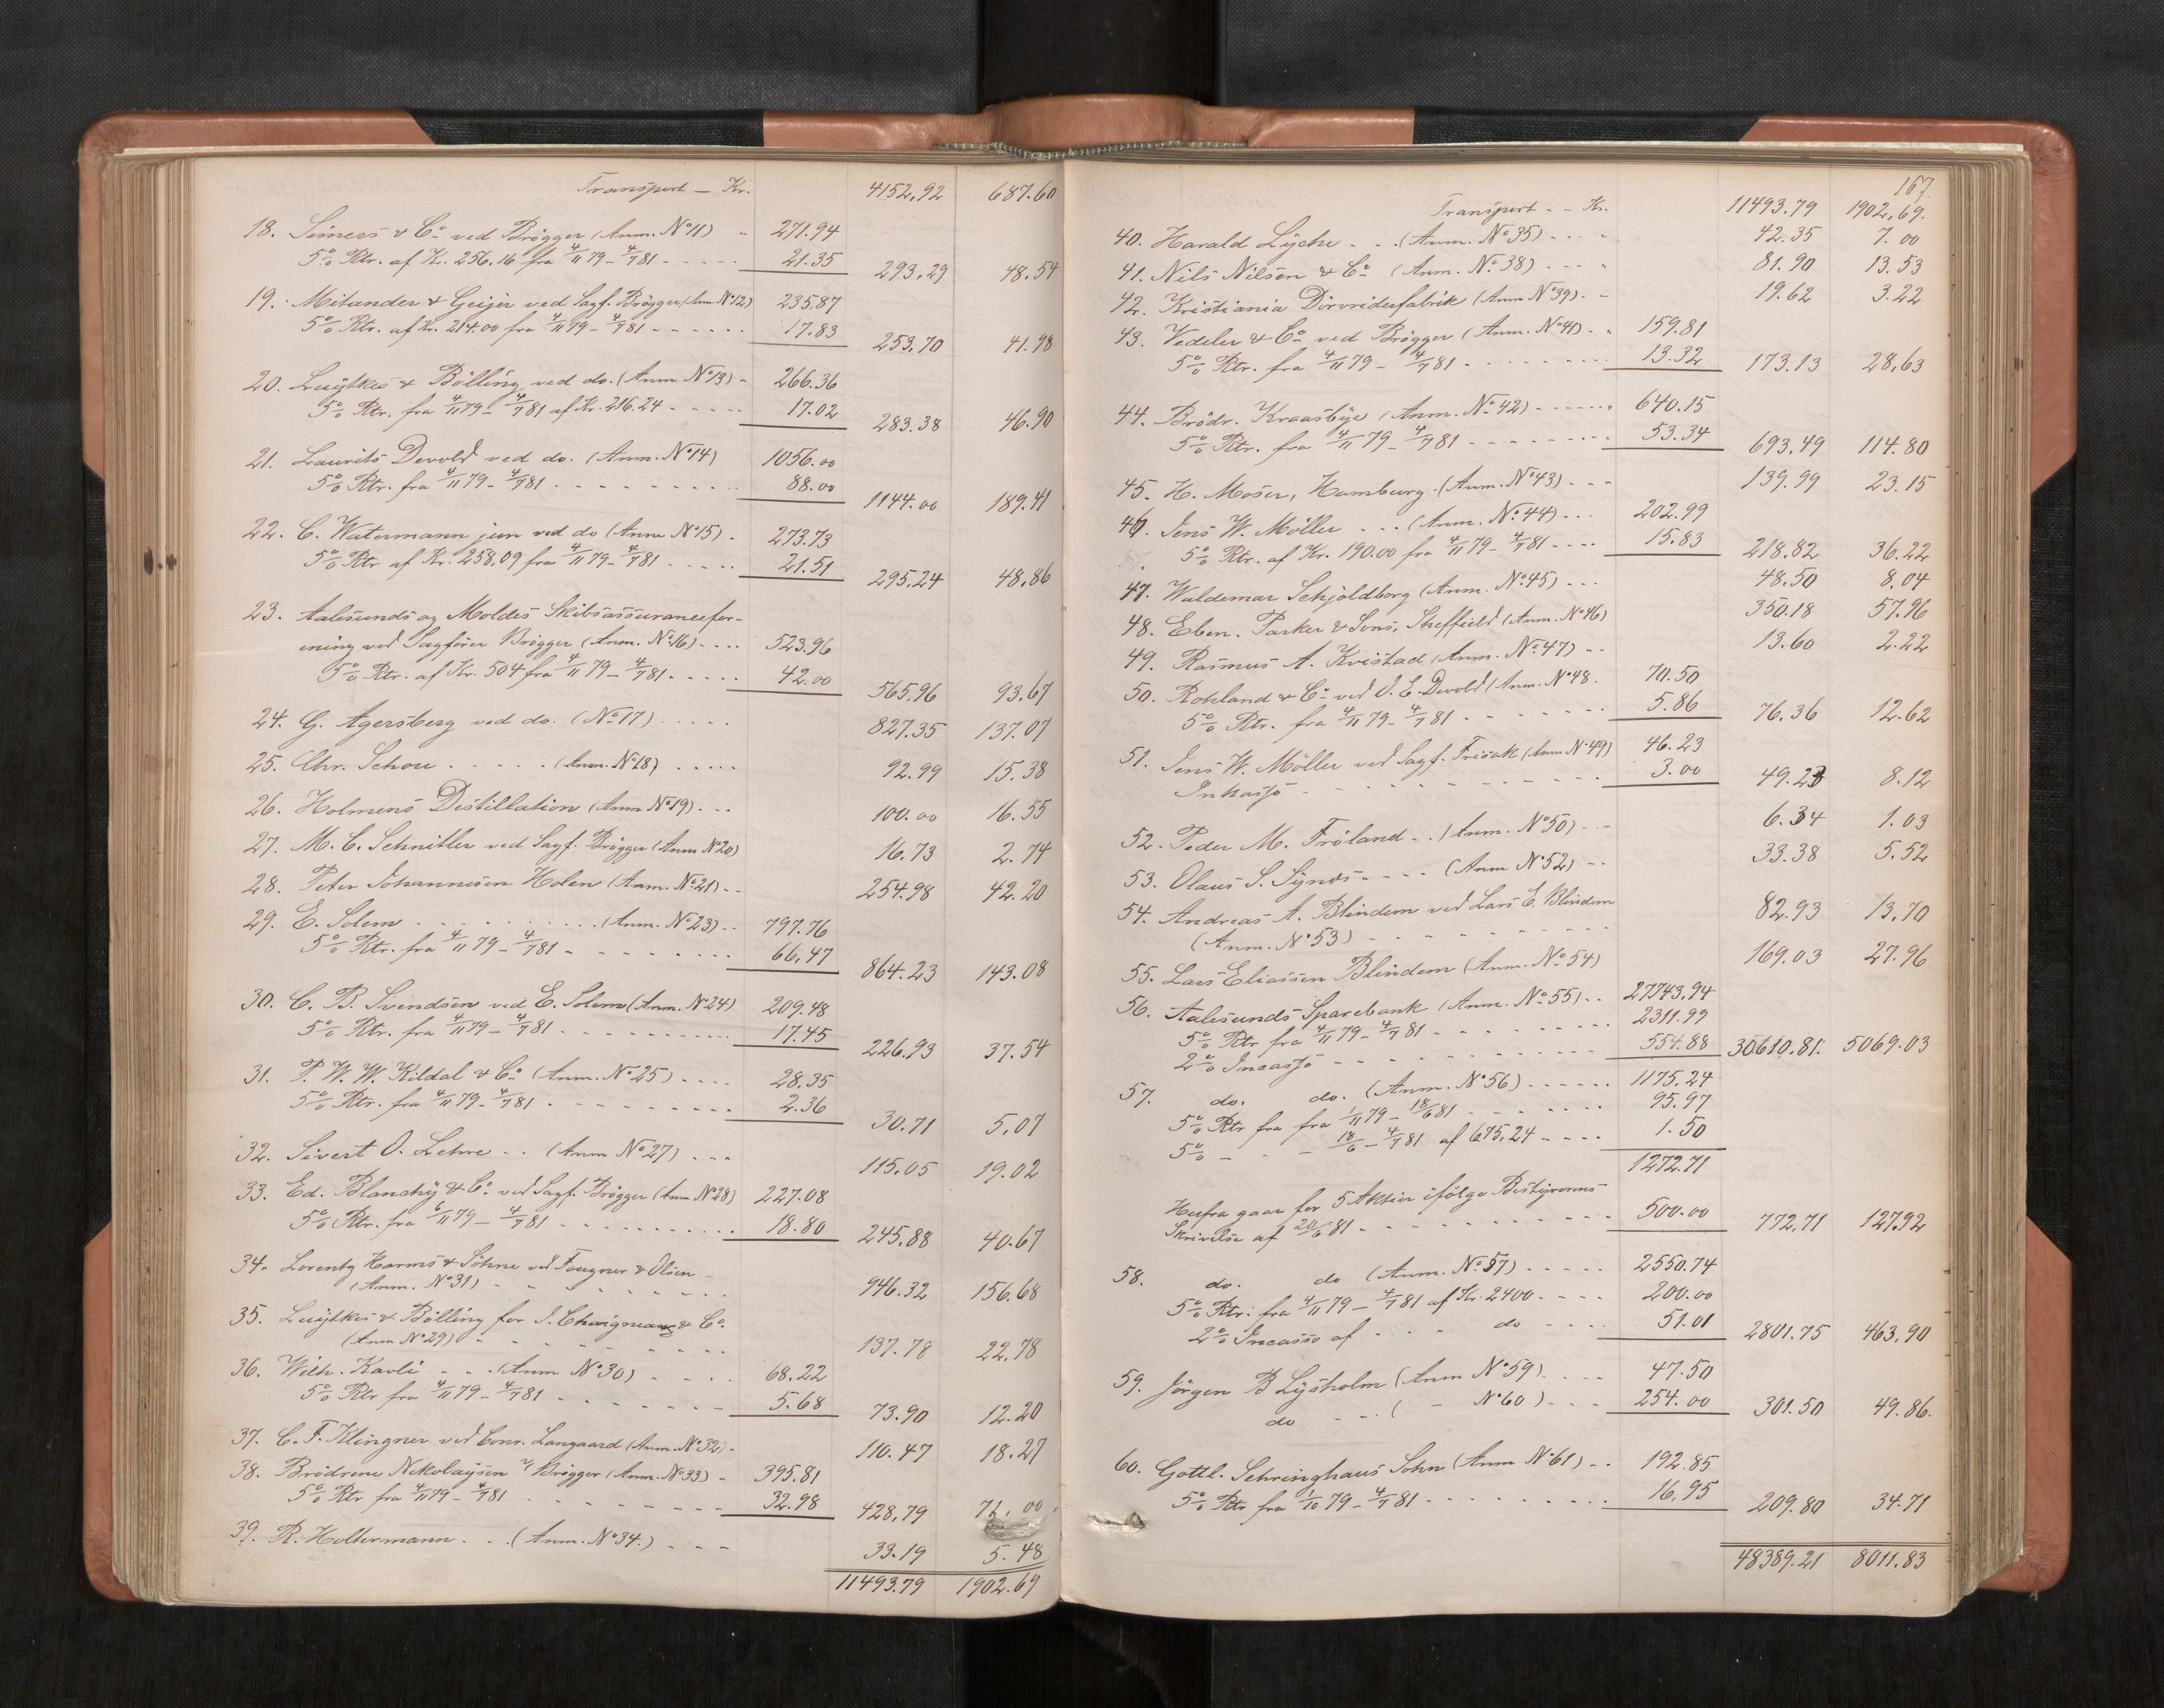 Transport — Kr. 4152.92 687.60
18. Simers & Co ved Brøgger (Anm. No 11) - 271.94
5% Rtr. af Kr. 256.16 fra 4/11 79 - 4/7 81 - - - - - 21.35 293.29 48.54
19. Mitander & Geijer ved Sagf. Brøgger (Anm. No 12) 235.87
5% Rtr. af Kr. 214.00 fra 4/11 79 - 4/7 81 - - - - - - 17.83 253.70 41.98
20. Luÿtkes & Bölling ved do. (Anm No 13) - 266.36
5% Rtr. fra 4/11 79 - 4/7 81 af Kr. 216.24 - - - - - 17.02 283.38 46.90
21. Laurits Devold ved do. (Anm. No 14) 1056.00
5% Rtr. fra 4/11 79 - 4/7 81 - - - - - - - - - 88.00 1144.00 189.41
22. C. Watermann jun ved do (Anm No 15) - 273.73
5% Rtr af Kr. 258.09 fra 4/11 79 - 4/7 81 - - - - - 21.51 295.24 48.86
23. Aalesunds og Moldes Skibsassurancefor-
ening ved Sagfører Brøgger (Anm. No 16) - - - - 523.96
5% Rtr. af Kr. 504 fra 4/11 79 - 4/7 81 - - - - - 42.00 565.96 93.67
24. G. Agersberg ved do. (No 17) - - - - - 827.35 137.07
25. Chr. Schou - - - - - (Anm. No 18) - - - - - 92.99 15.38
26. Holmens Destillation (Anm No 19) - - - 100.00 16.55
27. M. C. Schnitler ved Sagf. Brøgger (Anm No 20) 16.73 2.74
28. Peter Johannesen Holen (Anm. No 21) - - 254.98 42.20
29. E. Solem - - - - - - - - - (Anm. No 23) - - 797.76
5% Rtr. fra 4/11 79 - 4/7 81 - - - - - - - - 66.47 864.23 143.08
30. C. B. Svendsen ved E. Solem (Anm. No 24) 209.48
5% Rtr. fra 4/11 79 - 4/7 81 - - - - - - - - - 17.45 226.93 37.54
31. P. W. W. Kildal & Co (Anm. No 25) - - - - 28.35
5% Rtr. fra 4/11 79 - 4/7 81 - - - - - - - - - 2.36 30.71 5.07
32. Sivert O. Lehne - - (Anm No 27) - - - 115.05 19.02
33. Ed. Blanchÿ & Co ved Sagf. Brøgger (Anm No 28) 227.08
5% Rtr. fra 6/11 79 - 4/7 81 - - - - - - - - - 18.80 245.88 40.67
34. Lorentz Harms & Söhne ved Fougner & Olsen -
(Anm. No 31) - - - - - - - - 946.32 156.68
35. Luÿtkes & Bölling for J. Chavigneau & Co
(Anm No 29) - - - - - - - - 137.78 22.78
36. Wilh. Kavli - - - (Anm No 30) - - - - 68.22
5% Rtr fra 4/11 79 - 4/7 81 - - - - - - - - 5.68 73.90 12.20
37. C. F. Klingner ved Cons. Langaard (Anm. No 32) - 110.47 18.27
38. Brødrene Nikolaysen v/ Brøgger (Anm. No 33) - 395.81
5% Rtr fra 4/11 79 - 4/7 81 - - - - - - - - - 32.98 428.79 71.00
39. R. Holtermann - - - (Anm. No 34.) - - - 33.19 5.48
11493.79 1902.69
167
Transport - - Kr. 11493.79 1902.69.
40. Harald Lÿche - - - (Anm. No 35) - - - - 42.35 7.00
41. Nils Nilsen & Co (Anm. No 38) - - - - 81.90 13.53
42. Kristiania Dørvriderfabrik (Anm No 39) - - 19.62 3.22
43. Vedeler & Co ved Brøgger (Anm. No 41) - - 159.81
5% Rtr. fra 4/11 79 - 4/7 81 - - - - - - - - 13.32 173.13 28.63
44. Brödr. Kraasbÿe (Anm. No 42) - - - - - - 640.15
5% Rtr. fra 4/11 79 - 4/7 81 - - - - - - - - - 53.34 693.49 114.80
45. H. Moser, Hamburg. (Anm. No 43) - - - 139.99 23.15
46. Jens W. Möller - - - (Anm. No 44) - - - 202.99
5% Rtr. af Kr. 190.00 fra 4/11 79 - 4/7 81 - - - - 15.83 218.82 36.22
47. Waldemar Schjöldborg (Anm. No 45) - - - 48.50 8.04
48. Eben. Parker & Sons, Sheffield (Anm. No 46) 350.18 57.96
49. Rasmus A. Kvistad (Anm. No 47) - - 13.60 2.22
50. Rohland & Co ved O. E. Devold (Anm. No 48 - 70.50
5% Rtr. fra 4/11 79 - 4/7 81 - - - - - - - - 5.86 76.36 12.62
51. Jens W. Möller ved Sagf. Frisak (Anm No 49) 46.23
Inkasso - - - - - - - - - - - 3.00 49.23 8.12
52. Peder M. Fröland - - (Anm. No 50) - - - 6.34 1.03
53. Olaus S. Sÿnes - - - - (Anm No 52) - - 33.38 5.52
54. Andreas A. Blindem ved Lars E. Blindem
(Anm. No 53) - - - - - - - - - - 82.93 13.70
55. Lars Eliassen Blindem (Anm. No 54) 169.03 27.96
56. Aalesunds Sparebank (Anm. No 55) - - 27743.94
5% Rtr fra 4/11 79 - 4/7 81 - - - - - - - - - 2311.99
2% Incasso - - - - - - - - - - - - 554.88 30610.81. 5069.03
57. do. do. (Anm. No 56) - - - - - - 1175.24
5% Rtr fra fra 1/11 79 - 18/6 81 - - - - - - - - 95.97
5% - - - 18/6 - 4/7 81 af 675.24 - - - - 1.50
1272.71
Herfra gaar for 5 Aktier ifølge Bestyrerens
Skrivelse af 20/6 81 - - - - - - - - - - - 500.00 772.71 127.92
58. do. do (Anm. No 57) - - - - - 2550.74
5% Rtr. fra 4/11 79 - 4/7 81 af Kr. 2400 - - - - 200.00
2% Incasso af - - - - do - - - - 51.01 2801.75 463.90
59. Jörgen B Lÿsholm (Anm No 59) - - - - 47.50
do - - - ( - No 60) - - - 254.00 301.50 49.86.
60. Gottl. Schringhaus Sohn (Anm No 61) - - 192.85
5% Rtr fra 1/10 79 - 4/7 81 - - - - - - - - - 16.95 209.80 34.71
48389.21 8011.83